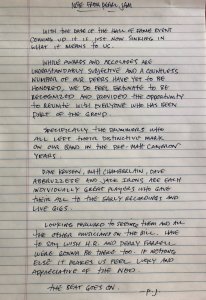 NOTE FROM PEARL JAM
WITH THE DATE OF THE HALL OF FAME EVENT
COMING UP IT IS JUST NOW SINKING IN
WHAT IT MEANS TO US.
WHILE AWARDS AND ACCOLADES ARE
UNDERSTANDABLY SUBJECTIVE AND A COUNTLESS
NUMBER OF OUR PEERS HAVE YET TO BE
HONORED, WE DO FEEL FORTUNATE TO BE
RECOGNIZED AND PROVIDED THE OPPORTUNITY
TO REUNITE WITH EVERYONE WHO HAS BEEN
PART OF THE GROUP.
SPECIFICALLY THE DRUMMERS WHO
ALL LEFT THEIR DISTINCTIVE MARK
ON OUR BAND IN THE PRE-MATT CAMERON
YEARS.
DAVE KRUSEN, MATT CHAMBERLAIN, DAVE
ABBRUZZESE AND JACK IRONS ARE EACH
INDIVIDUALLY GREAT PLAYERS WHO GAVE
THEIR ALL TO THE EARLY RECORDINGS AND
LIVE GIGS.
LOOKING FORWARD TO SEEING THEM AND ALL
THE OTHER MUSICIANS ON THE BILL. HAVE
TO SAY, WISH H.R. AND PERRY FARRELL
WERE GONNA BE THERE TOO. IF NOTHING
ELSE IT MAKES US FEEL LUCKY AND
APPRECIATIVE OF THE NOD.
THE BEAT GOES ON.
-P.J.